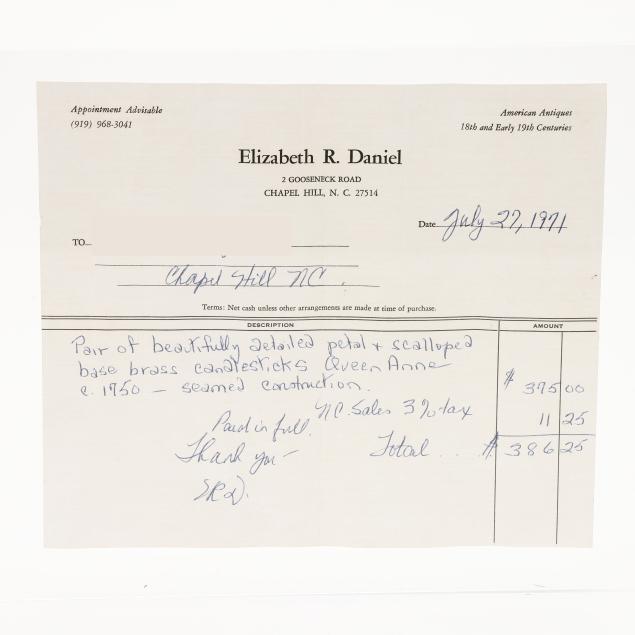 Appointment Advisable
(919) 968-3041
American Antiques
18th and Early 19th Centuries
Elizabeth R. Daniel
2 GOOSENECK ROAD
CHAPEL HILL, N. C. 27514
Date July 27, 1971
TO
Chapel Hill NC.
Terms: Net cash unless other arrangements are made at time of purchase.
DESCRIPTION AMOUNT
Pair of beautifully detailed petal + scalloped
base brass candlesticks Queen Anne
c. 1750 — seamed construction. $ 375 00
NC. Sales 3% tax 11 25
Paid in full.
Thank you — Total... $ 386 25
ERD.